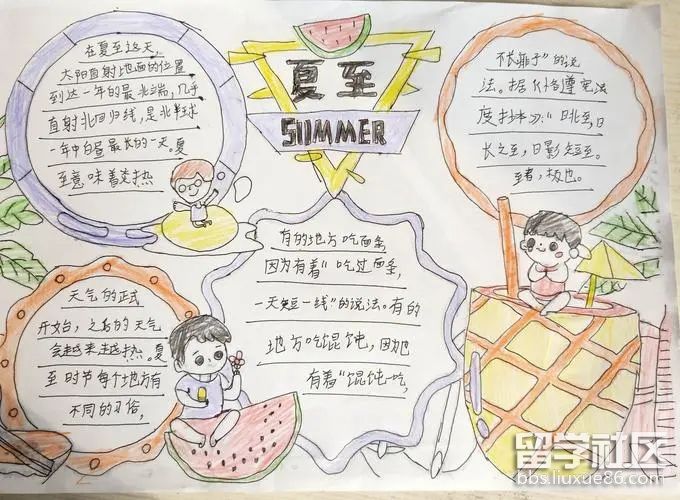 夏至
SUMMER
在夏至这天，
太阳直射地面的位置
到达一年的最北端，几乎
直射北回归线，是北半球
一年中白昼最长的一天。夏
至意味着炎热
天气的正式
开始，之后的天气
会越来越热。夏
至时节每个地方有
不同的习俗，
有的地方吃面条
因为有着"吃过面条，
一天短一线"的说法。有的
地方吃馄饨，因为也
有着"馄饨吃，
的说
法。据《恪遵宪法
度抄本》："日北至，日
长之至，日影短至。
至者，极也。
留学社区
bbs.liuxue86.com